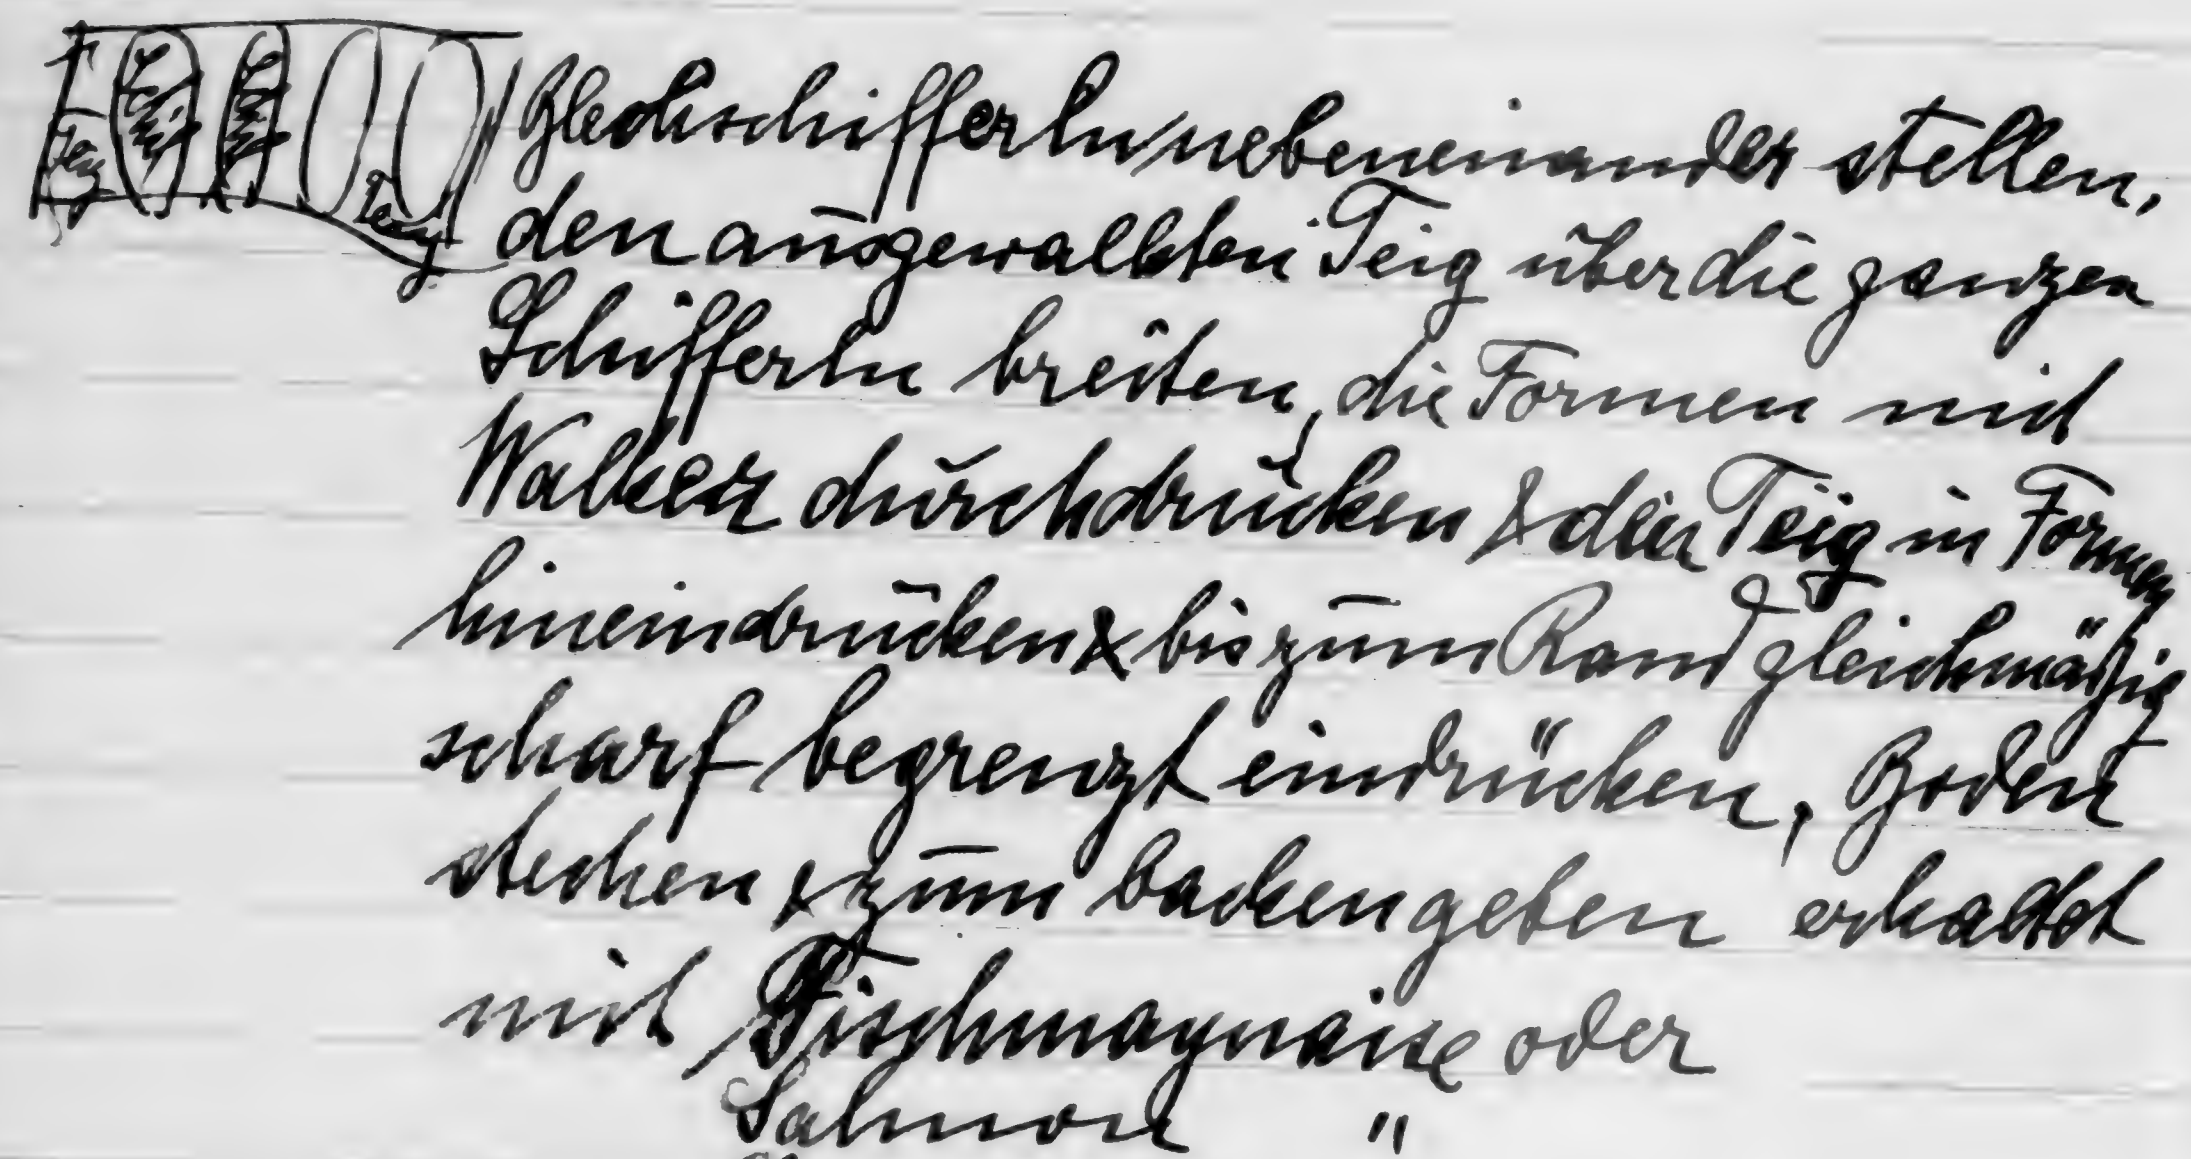 Teig
Teig
Blechschifferln nebeneinander stellen,
den ausgewalkten Teig über die ganzen
Schifferln breiten, die Formen mit
Walker durchdrücken & den Teig in Formen
hineindrücken & bis zum Rand gleichmäßig
scharf begrenzt eindrücken, Boden
stechen & zum backen geben erkaltet
mit Fischmaynaise oder
Salmon "